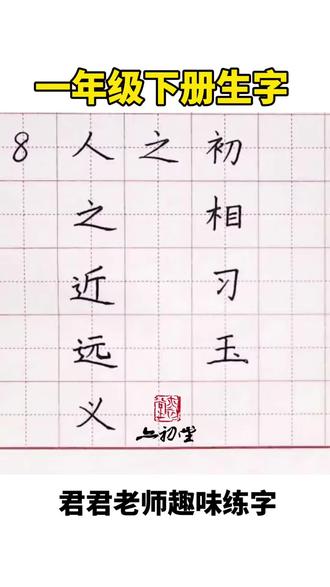 一年级下册生字
8 人 之 初
之 相
近 习
远 玉
义
君君老师趣味练字